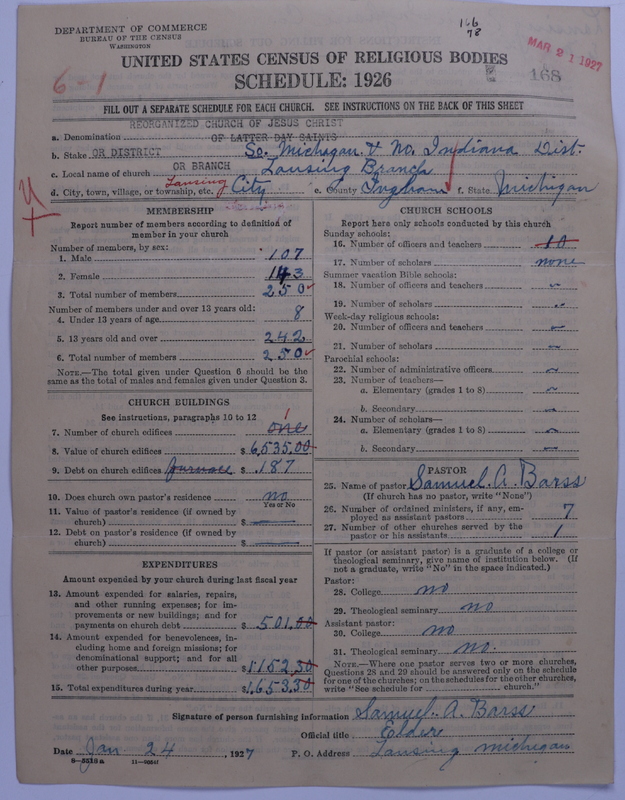 DEPARTMENT OF COMMERCE
BUREAU OF THE CENSUS
WASHINGTON
166
78
MAR 21 1927
168
6-1
UNITED STATES CENSUS OF RELIGIOUS BODIES
SCHEDULE: 1926
FILL OUT A SEPARATE SCHEDULE FOR EACH CHURCH. SEE INSTRUCTIONS ON THE BACK OF THIS SHEET
REORGANIZED CHURCH OF JESUS CHRIST
a. Denomination OF LATTER DAY SAINTS
b. Stake OR DISTRICT So. Michigan & No. Indiana Dist.
c. Local name of church OR BRANCH Lansing Branch
d. City, town, village, or township, etc. Lansing City e. County Ingham f. State Michigan
MEMBERSHIP
Report number of members according to definition of
member in your church
Number of members, by sex:
1. Male 107
2. Female 143
3. Total number of members 250
Number of members under and over 13 years old:
4. Under 13 years of age 8
5. 13 years old and over 242
6. Total number of members 250
NOTE.—The total given under Question 6 should be
same as the total of males and females given under Question 3.
CHURCH BUILDINGS
See instructions, paragraphs 10 to 12
7. Number of church edifices one 1
8. Value of church edifices $6,535.00
9. Debt on church edifices furnace $ 187
10. Does church own pastor's residence no
Yes or No
11. Value of pastor's residence (if owned by
church) $
12. Debt on pastor's residence (if owned by
church) $
EXPENDITURES
Amount expended by your church during last fiscal year
13. Amount expended for salaries, repairs,
and other running expenses; for im-
provements or new buildings; and for
payments on church debt $ 501.00
14. Amount expended for benevolences, in-
cluding home and foreign missions; for
denominational support; and for all
other purposes $1152.30
15. Total expenditures during year $1,653.30
CHURCH SCHOOLS
Report here only schools conducted by this church
Sunday schools:
16. Number of officers and teachers 10
17. Number of scholars none
Summer vacation Bible schools:
18. Number of officers and teachers
19. Number of scholars
Week-day religious schools:
20. Number of officers and teachers
21. Number of scholars
Parochial schools:
22. Number of administrative officers
23. Number of teachers—
a. Elementary (grades 1 to 8)
b. Secondary
24. Number of scholars—
a. Elementary (grades 1 to 8)
b. Secondary
PASTOR
25. Name of pastor Samuel. A. Barss
(If church has no pastor, write "None")
26. Number of ordained ministers, if any, em-
ployed as assistant pastors 7
27. Number of other churches served by the
pastor or his assistants 1
If pastor (or assistant pastor) is a graduate of a college or
theological seminary, give name of institution below. (If
not a graduate, write "No" in the space indicated.)
Pastor:
28. College no
29. Theological seminary no
Assistant pastor:
30. College no
31. Theological seminary no.
NOTE.—Where one pastor serves two or more churches,
Questions 28 and 29 should be answered only on the schedule
for one of the churches; on the schedules for the other churches,
write "See schedule for church."
Signature of person furnishing information Samuel. A. Barss
Official title Elder
Date Jan 24, 1927 P. O. Address Lansing michigan
8-5518a 11-9054f